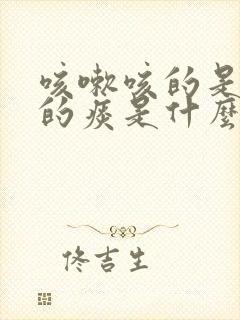 咳嗽咳的是
的痰是什麼
佟吉生